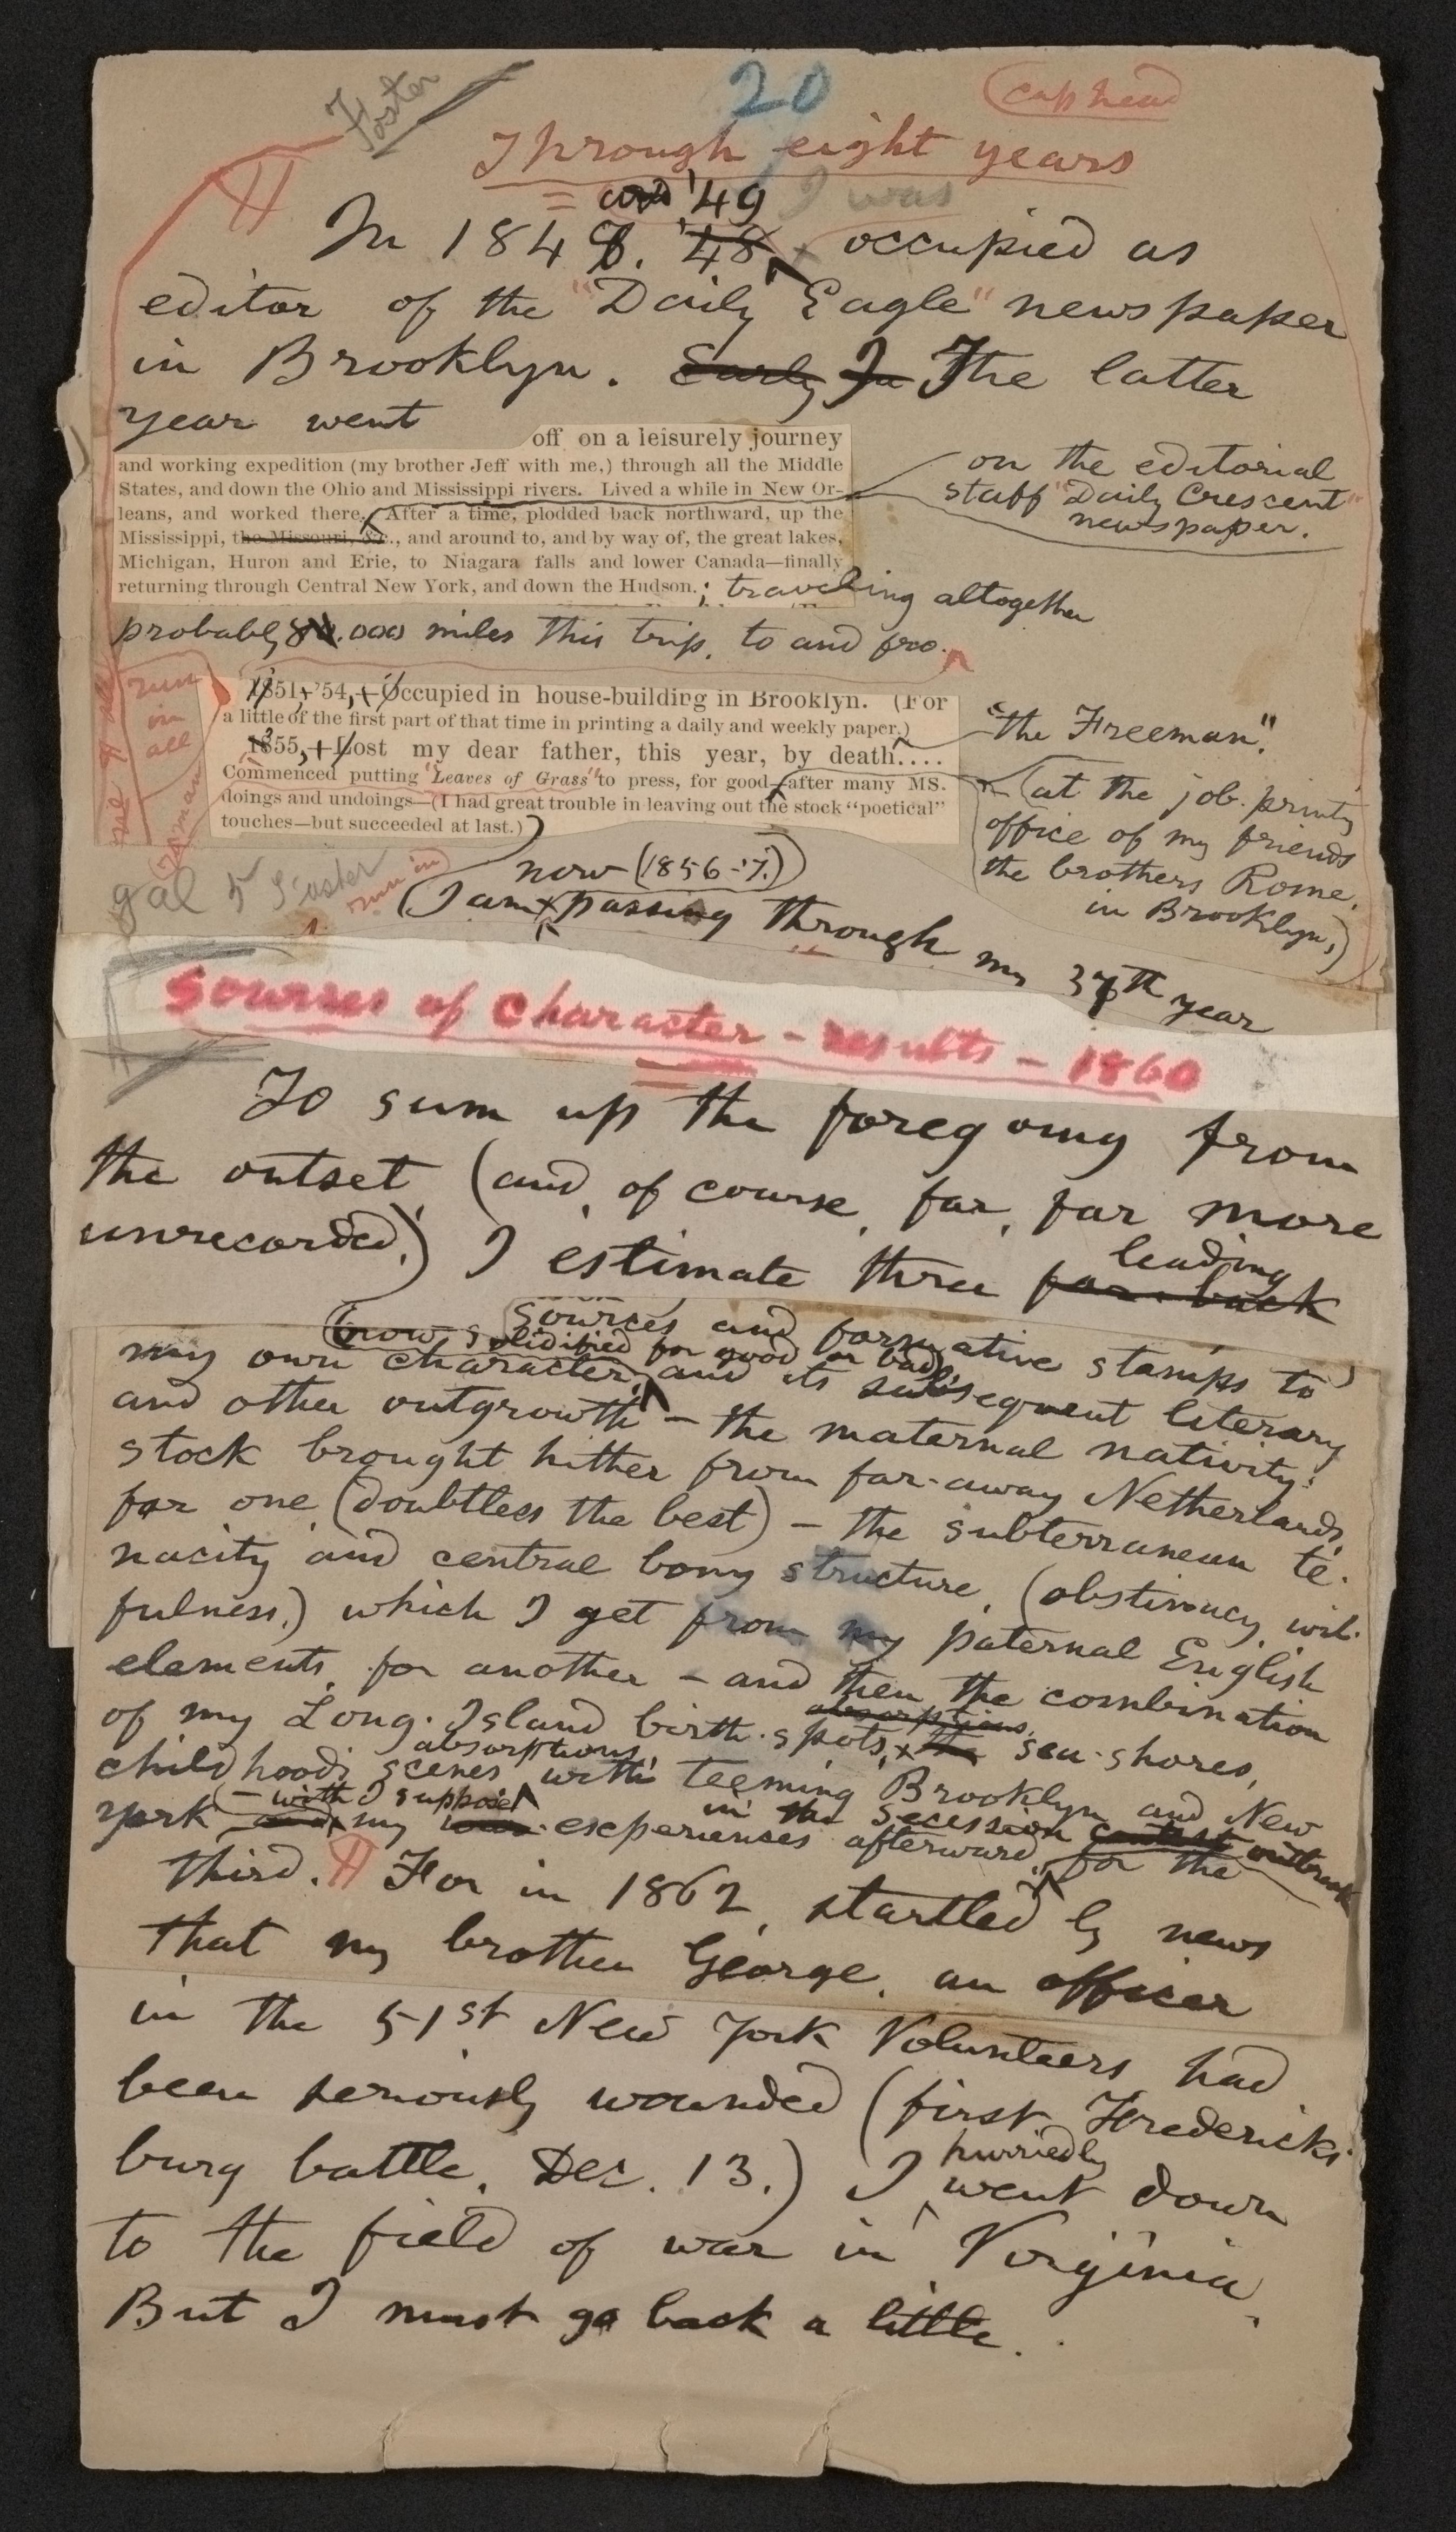 Foster
20
cap head
Through eight years
and '49 I was
In 1848. '48 occupied as
editor of the "Daily Eagle" newspaper
in Brooklyn. Early In The latter
year went
off on a leisurely journey
and working expedition (my brother Jeff with me,) through all the Middle
States, and down the Ohio and Mississippi rivers. Lived a while in New Or-
leans, and worked there. After a time, plodded back northward, up the
Mississippi, the Missouri, &c., and around to, and by way of, the great lakes,
Michigan, Huron and Erie, to Niagara falls and lower Canada—finally
returning through Central New York, and down the Hudson.; traveling altogether
on the editorial
staff "Daily Crescent"
newspaper.
probably 8,000 miles this trip, to and fro.
run
in
all
1851, '54, Occupied in house-building in Brooklyn. (For
a little of the first part of that time in printing a daily and weekly paper.)
"the Freeman".
1855, Lost my dear father, this year, by death....
Commenced putting "Leaves of Grass" to press, for good—after many MS.
doings and undoings—(I had great trouble in leaving out the stock "poetical"
touches—but succeeded at last.)
(at the job printing
office of my friends
the brothers Rome,
in Brooklyn,)
roman
gal 5 Foster
run in
now (1856-'7.)
(I am passing through my 37th year
Sources of Character – results – 1860
To sum up the foregoing from
the outset (and, of course, far, far more
unrecorded,) I estimate three far-back
leading
sources and formative stamps to
(now solidified for good or bad)
my own character, and its subsequent literary
and other outgrowth – the maternal nativity-
stock brought hither from far-away Netherlands,
for one, (doubtless the best) – the subterranean te-
nacity and central bony structure, (obstinacy, wil-
fulness,) which I get from my paternal English
elements, for another – and then the combination
absorptions,
of my Long-Island birth-spot, the sea-shores,
absorptions,
childhood's scenes, with teeming Brooklyn and New
– with I suppose in the secession contest outbreak
York and my war experiences afterward, for the
third. For in 1862, startled by news
that my brother George, an officer
in the 51st New York Volunteers had
been seriously wounded (first Fredericks-
burg battle, Dec. 13.) I
hurriedly
went down
to the field of war in Virginia.
But I must go back a little.